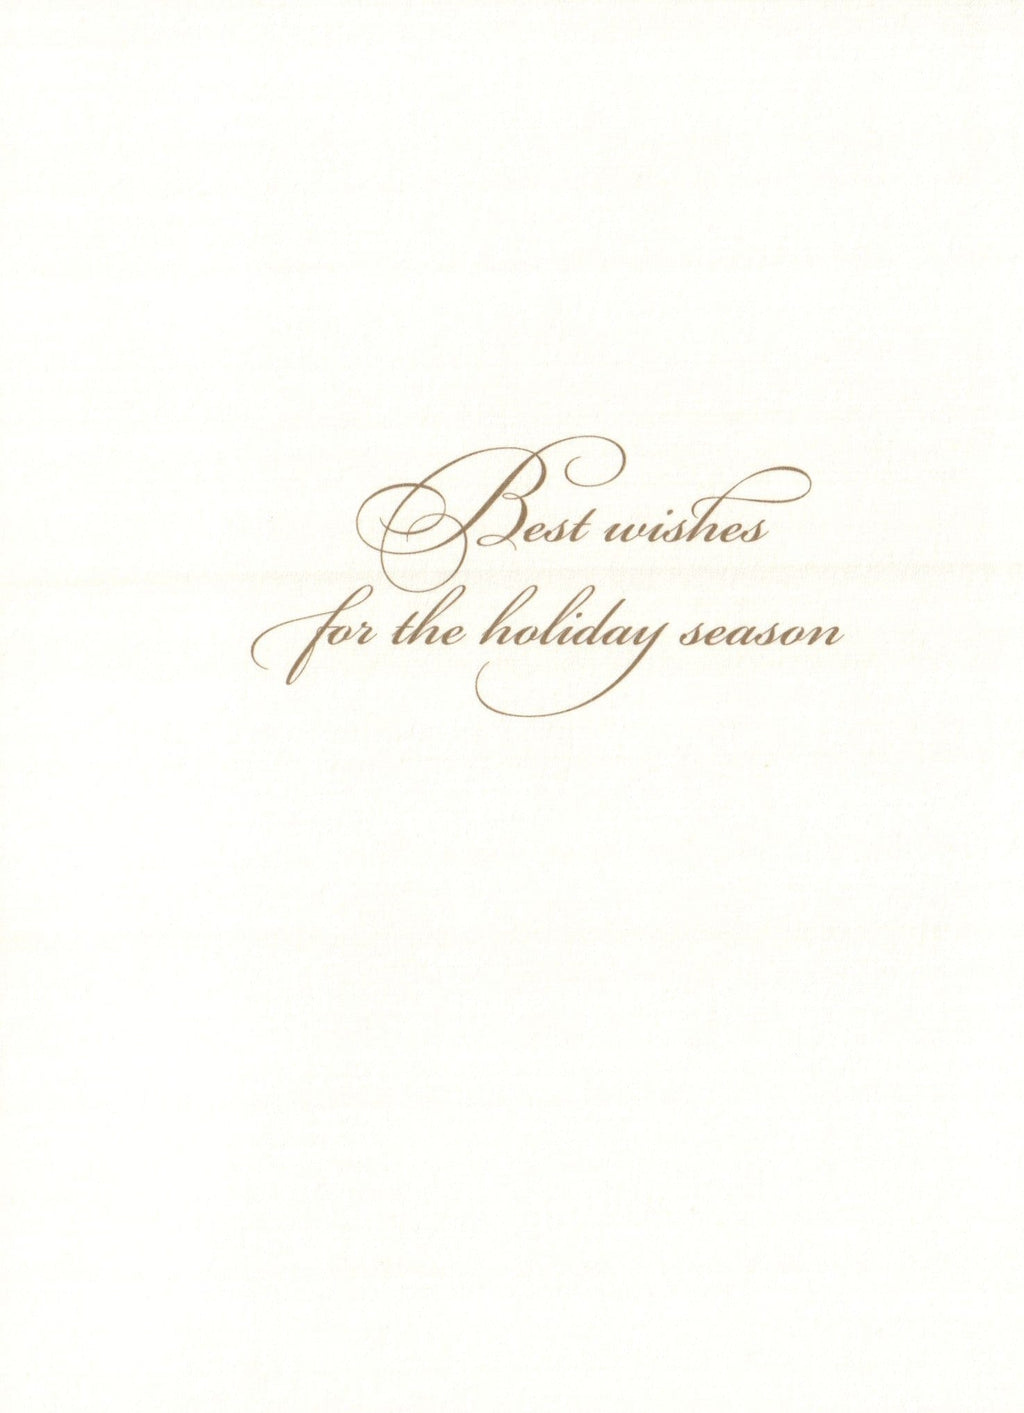 Best wishes
for the holiday season